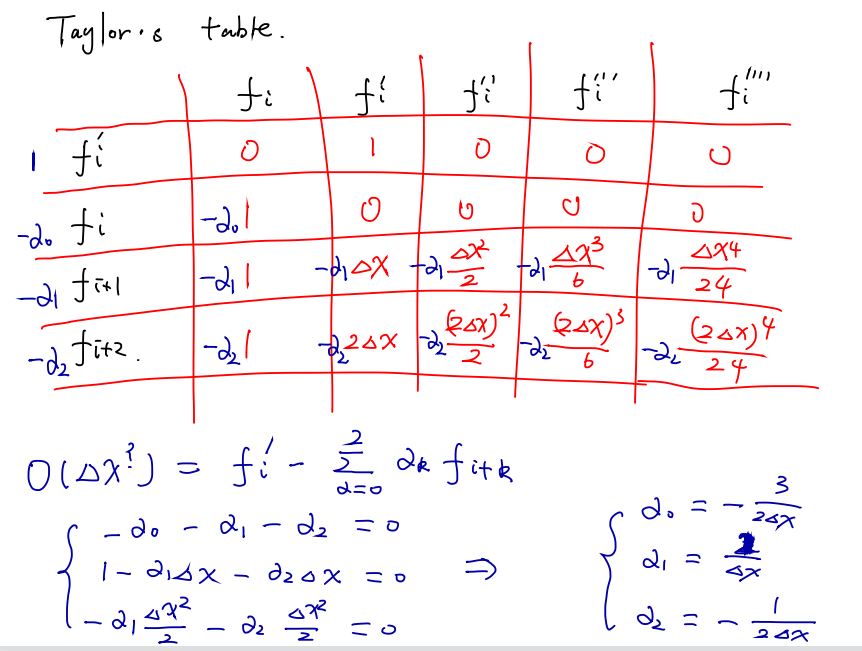 Taylor's table.
fi fi' fi'' fi''' fi''''
1 fi' 0 1 0 0 0
-α₀ fi -α₀1 0 0 0 0
-α₁ fi+1 -α₁1 -α₁Δx -α₁ Δx²/2 -α₁ Δx³/6 -α₁ Δx⁴/24
-α₂ fi+2. -α₂1 -α₂2Δx -α₂ (2Δx)²/2 -α₂ (2Δx)³/6 -α₂ (2Δx)⁴/24
O(Δx^?) = fi' - Σ_{α=0}^{2} αₖ fi+k
{ -α₀ - α₁ - α₂ = 0
1 - α₁Δx - α₂Δx = 0
-α₁ Δx²/2 - α₂ Δx²/2 = 0
⇒
{ α₀ = - 3/2Δx
α₁ = 2/Δx
α₂ = - 1/2Δx